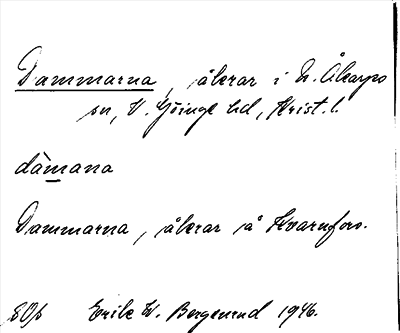 Dammarna, åkrar i N. Åkarps
sn, V. Göinge hd, Krist. l.
dàmana
Dammarna, åkrar på Kvarnfors.
Erik W. Bergenrud 1946.